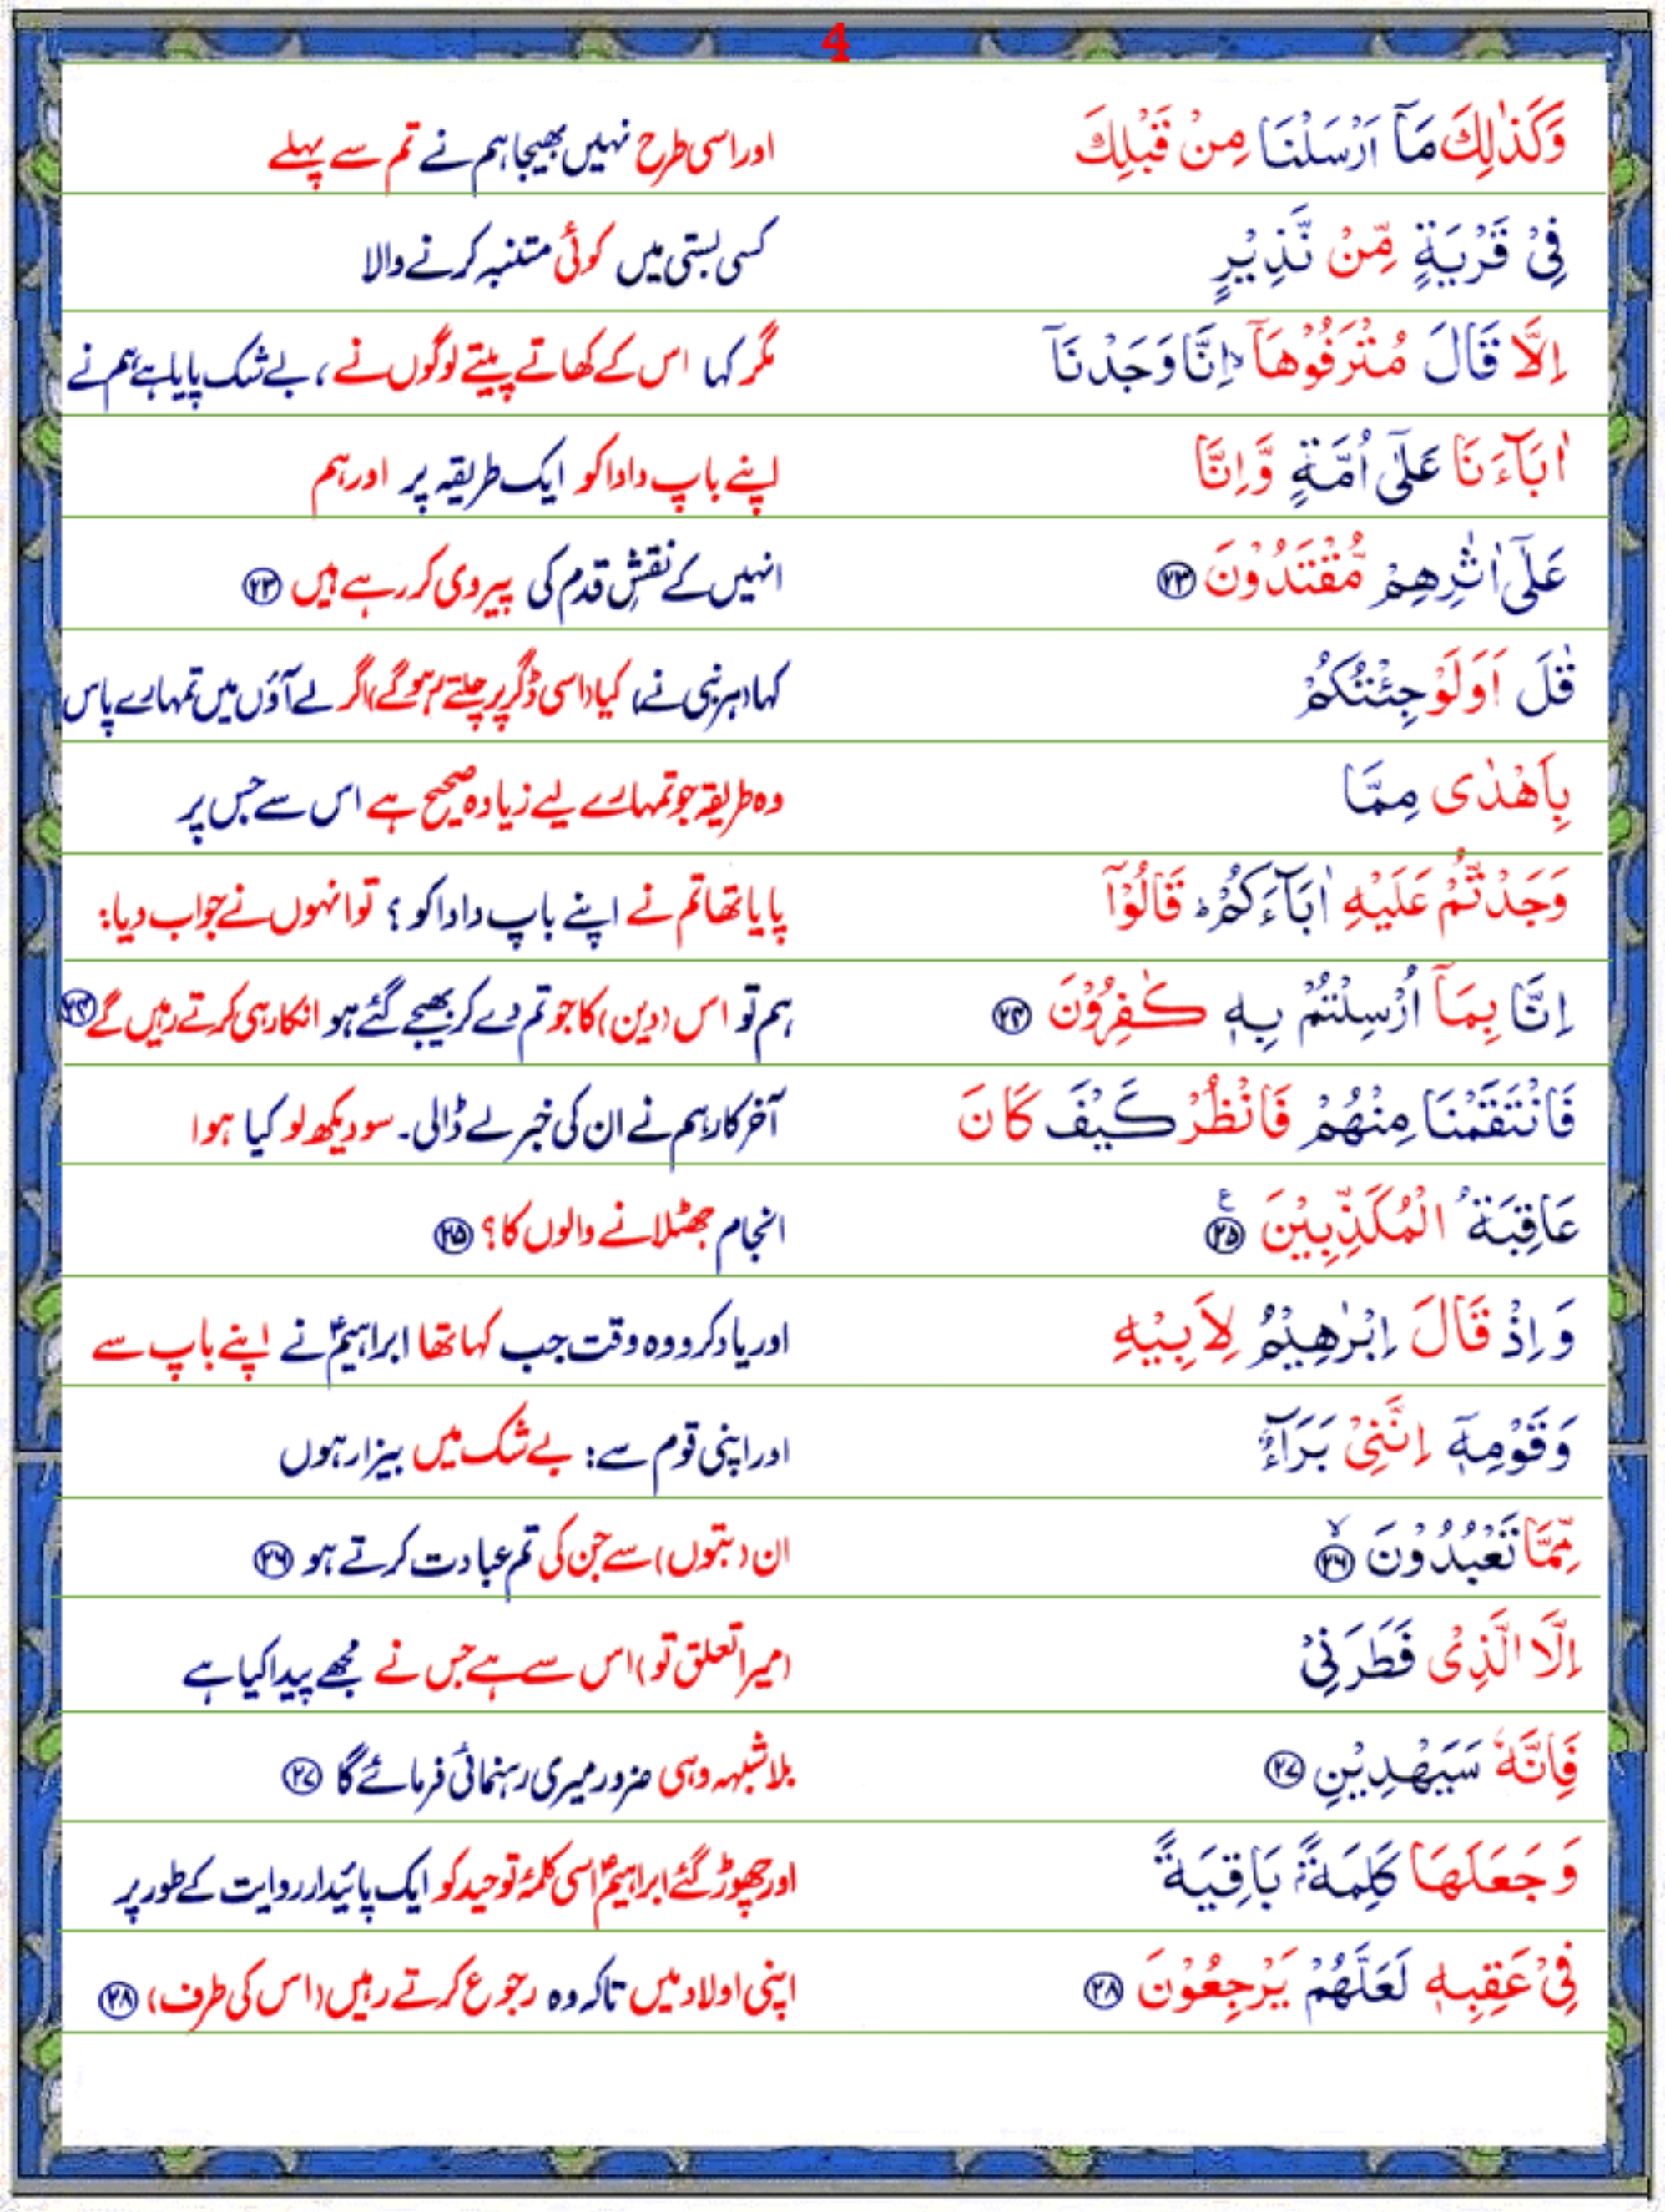 4
وَكَذٰلِكَ مَآ اَرْسَلْنَا مِنْ قَبْلِكَ اور اسی طرح نہیں بھیجا ہم نے تم سے پہلے
فِىْ قَرْيَةٍ مِّنْ نَّذِيْرٍ کسی بستی میں کوئی متنبہ کرنے والا
اِلَّا قَالَ مُتْرَفُوْهَآ ۙ اِنَّا وَجَدْنَآ مگر کہا اس کے کھاتے پیتے لوگوں نے، بے شک پایا ہے ہم نے
اٰبَآءَنَا عَلٰٓى اُمَّةٍ وَّاِنَّا اپنے باپ دادا کو ایک طریقہ پر اور ہم
عَلٰٓى اٰثٰرِهِمْ مُّقْتَدُوْنَ ﴿۲۳﴾ انہیں کے نقشِ قدم کی پیروی کر رہے ہیں ﴿۲۳﴾
قٰلَ اَوَلَوْ جِئْتُكُمْ کہا (ہر نبی نے) کیا (اسی ڈگر پر چلتے رہو گے) اگر لے آؤں میں تمہارے پاس
بِاَهْدٰى مِمَّا وہ طریقہ جو تمہارے لیے زیادہ صحیح ہے اس سے جس پر
وَجَدْتُّمْ عَلَيْهِ اٰبَآءَكُمْ ؕ قَالُوْٓا پایا تھا تم نے اپنے باپ دادا کو؟ تو انہوں نے جواب دیا:
اِنَّا بِمَآ اُرْسِلْتُمْ بِهٖ كٰفِرُوْنَ ﴿۲۴﴾ ہم تو اس (دین) کا جو تم دے کر بھیجے گئے ہو انکار ہی کرتے رہیں گے ﴿۲۴﴾
فَانْتَقَمْنَا مِنْهُمْ فَانْظُرْ كَيْفَ كَانَ آخر کار ہم نے ان کی خبر لے ڈالی۔ سو دیکھ لو کیا ہوا
عَاقِبَةُ الْمُكَذِّبِيْنَ ﴿۲۵﴾ ع انجام جھٹلانے والوں کا؟ ﴿۲۵﴾
وَاِذْ قَالَ اِبْرٰهِيْمُ لِاَبِيْهِ اور یاد کرو وہ وقت جب کہا تھا ابراہیمؑ نے اپنے باپ سے
وَقَوْمِهٖٓ اِنَّنِىْ بَرَآءٌ اور اپنی قوم سے: بے شک میں بیزار ہوں
مِّمَّا تَعْبُدُوْنَ ﴿۲۶﴾ ۙ ان (بتوں) سے جن کی تم عبادت کرتے ہو ﴿۲۶﴾
اِلَّا الَّذِىْ فَطَرَنِىْ (میرا تعلق تو) اس سے ہے جس نے مجھے پیدا کیا ہے
فَاِنَّهٗ سَيَهْدِيْنِ ﴿۲۷﴾ بلاشبہہ وہی ضرور میری رہنمائی فرمائے گا ﴿۲۷﴾
وَجَعَلَهَا كَلِمَةًۢ بَاقِيَةً اور چھوڑ گئے ابراہیمؑ اسی کلمۂ توحید کو ایک پائیدار روایت کے طور پر
فِىْ عَقِبِهٖ لَعَلَّهُمْ يَرْجِعُوْنَ ﴿۲۸﴾ اپنی اولاد میں تاکہ وہ رجوع کرتے رہیں (اس کی طرف) ﴿۲۸﴾